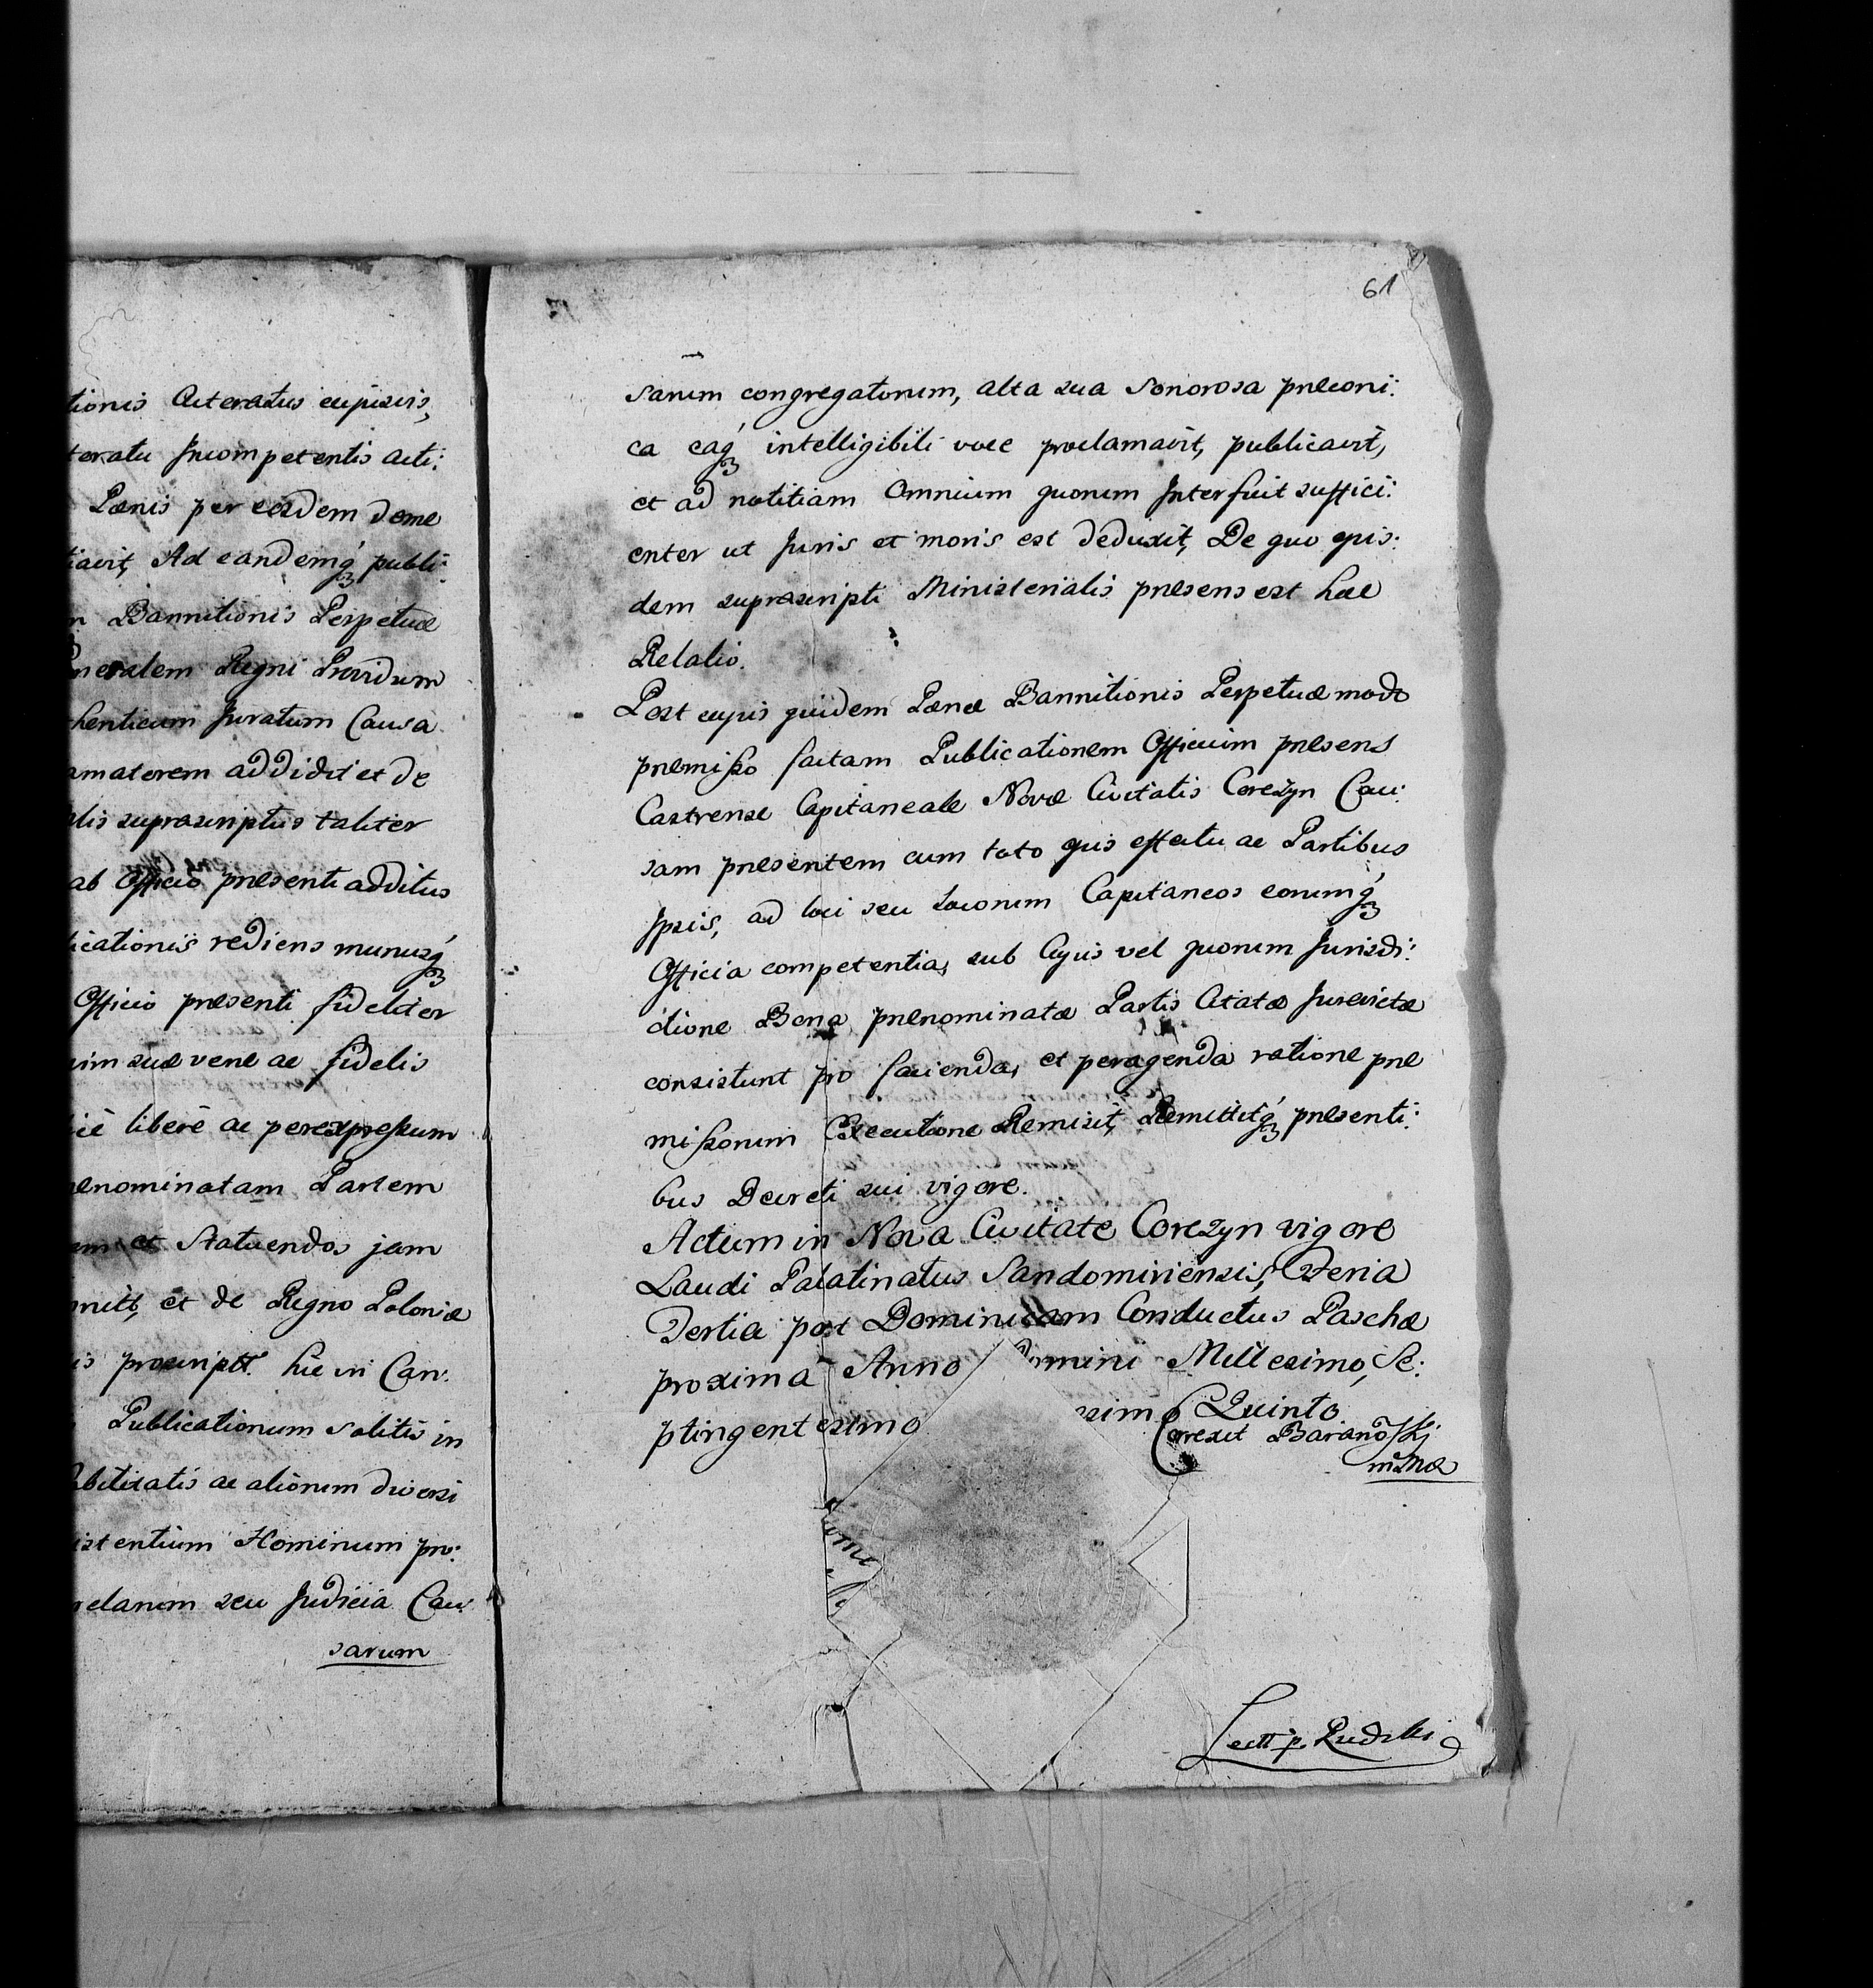 tionis Acteratus cujusvis,
teratu Incompetentis acti:
Pænis per eosdem deme
tiavit, Ad eandemq́ȝ publi:
Bannitionis Perpetuæ
neralem Regni Providum
thenticum Juratum Causa
amatorem addidit et de
alis suprascriptus taliter
ab Officio præsenti additus
licationiis rediens munusq́ȝ
Officio præsenti fideliter
suæ veræ ac fidelis
libere ac per expressum
ænominatam Partem
et Statuendos jam
et de Regno Poloniæ
proscriptt. hic in Can:
Publicationum solitis in
Nobilitatis ac aliorum diversi
istentium Hominum pro:
relarum seu Judicia Cau:
sarum
61
sarum congregatorum, alta sua Sonorosa præconi:
ca eaq́ȝ intelligibili voce proclamavit, publicavit,
et ad notitiam Omnium quorum Interfuit suffici:
enter ut Juris et moris est deduxit, De quo ejus:
dem suprascripti Ministerialis præsens est hæc
Relatio.
Post cujus quidem Pænæ Bannitionis Perpetuæ modo
præmisso factam Publicationem Officium præsens
Castrense Capitaneale Novæ Civitatis Corczyn Cau:
sam præsentem cum toto ejus effectu ac Partibus
Ipsis, ad loci seu Locorum Capitaneos eorumq́ȝ
Officia competentia, sub Cujus vel quorum Jurisdi:
ctione Bona prænominatæ Partis Citatæ Jurevictæ
consistunt pro facienda, et peragenda ratione præ
missorum Executione Remisit, Remittitq́ȝ præsenti:
bus Decreti sui vigore.
Actum in Nova Civitate Corczyn vigore
Laudi Palatinatus Sandomiriensis, Feria
Tertia post Dominicam Conductus Paschæ
proxima Anno Domini Millesimo, Se:
ptingentesimo simo Quinto
Correxit Baranoski
mane
Lectt p. Rudzki